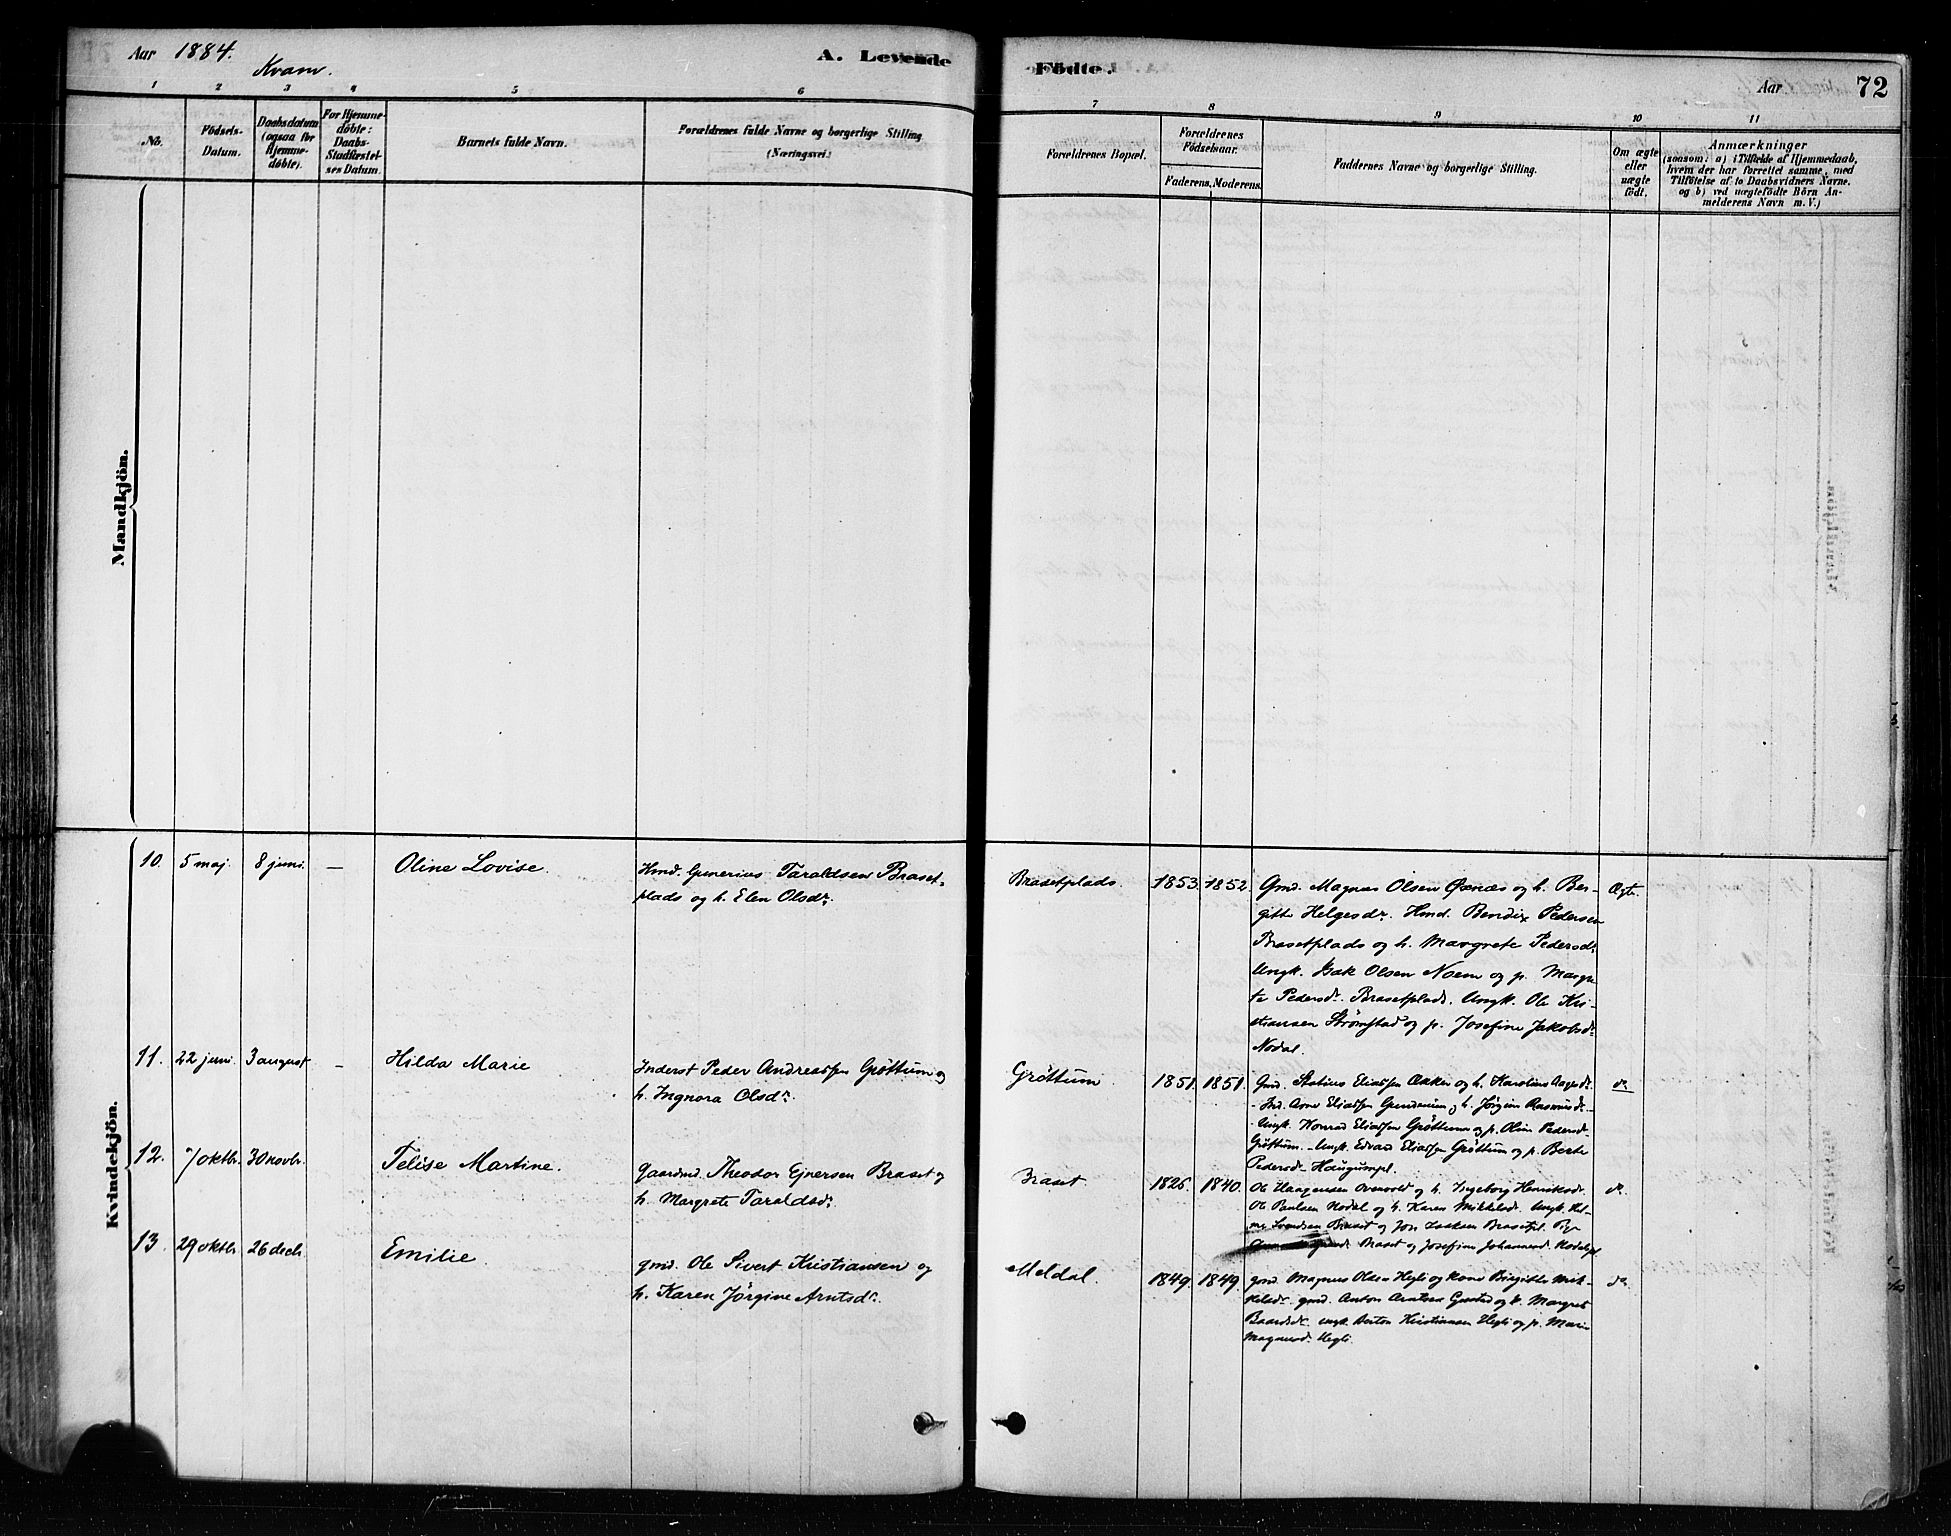 Aar 1884.
Kvam.
A. Levende
Födte.
Aar
72
1
2
3
4
5
6
7
8
9
10
11
No.
Födsels-
Datum.
Daabsdatum
(ogsaa for
Hjemme-
döbte).
For Hjemme-
döbte:
Daabs-
Stadfæstel-
ses Datum.
Barnets fulde Navn.
Forældrenes fulde Navne og borgerlige Stilling
(Næringsvei.)
Forældrenes Bopæl.
Forældrenes
Födselsaar.
Faderens. Moderens.
Faddernes Navne og borgerlige Stilling.
Om ægte
eller
uægte
födt.
Anmærkninger
(saasom: a) i Tilfælde af Hjemmedaab,
hvem der har forrettet samme, med
Tilföielse af to Daabsvidners Navne,
og b) ved uægtefödte Börn An-
melderens Navn m. V.)
Mandkjön.
Kvindekjön.
10. 5 maj. 8 juni. — Oline Lovise.
Hmd. Gunerius Taraldsen Braset-
plads og h. Elen Olsdr.
Brasetplads. 1853. 1852.
Gmd. Magnus Olsen Øxnæs og h. Ber-
gitte Helgesdr. Hmd. Bendix Pedersen
Brasetplads og h. Margrete Pedersdr.
Ungk. Isak Olsen Noem og p. Margre-
te Pedersdr. Brasetplads. Ungk. Ole Kri-
stiansen Strømstad og p. Josefine Jakobsdr.
Nodal.
Ægte.
11. 22 juni. 3 august — Hilda Marie
Inderst Peder Andreassen Grøttum og
h. Ingnora Olsdr.
Grøttum 1851. 1851.
Gmd. Eliassen Aakker og h. Karoline Aagesdr.
Ind. Arne Eliassen og h. Jørgine Rasmusdr.
Ungk. Konrad Eliassen Grøttum og p. Oline Pedersdr.
Grøttum. Ungk. Edvard Eliassen Grøttum og p. Berte
Pedersdr. Haugumpl.
do.
12. 7 oktbr. 30 novbr. Felise Martine.
Gaardmd. Theodor Ejnersen Braset og
h. Margrete Taraldsdr.
Braset. 1825. 1840.
Ole Haagensen og h. Ingeborg Henriksdr.
Ole Paulsen Nodal og h. Karen Mikkelsdr. Ungk.
Svendsen Braset og Jon Isaksen Brasetpl.
Braset og Josefine Johannesd. Nodalpl.
do.
13. 29 oktbr. 26 decbr. Emilie.
gmd. Ole Sivert Kristiansen og
h. Karen Jørgine Arntsdr.
Meldal. 1849. 1849.
gmd. Magnus Olsen Hegli og kone Birgitte Mik-
kelsdr. gmd. Anton Arntsen og k. Margret
Baardsdr. ungk. Anton Kristiansen Hegli og p. Marie
Magnusdr. Hegli.
do.